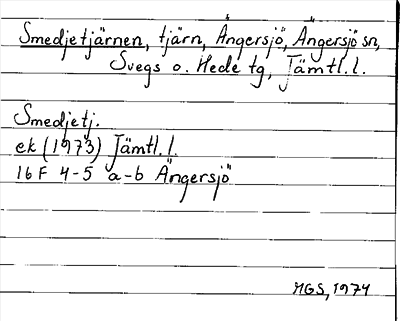 Smedjetjärnen, tjärn, Ängersjö, Ängersjö sn,
Svegs o. Hede tg, Jämtl.l.
Smedjetj.
ek (1973) Jämtl.l.
16F 4-5 a-b Ängersjö
MGS, 1974